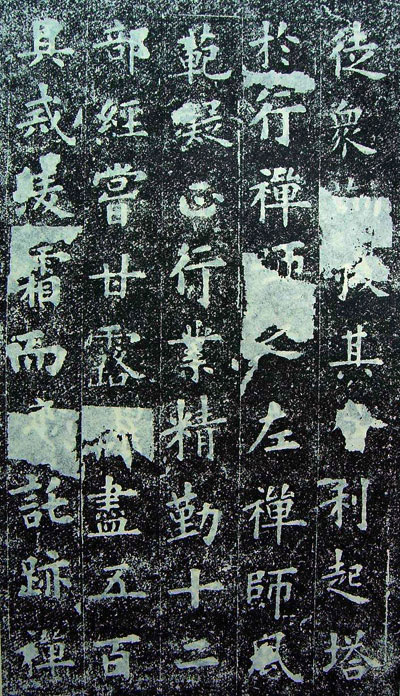 徒眾收其舍利起塔
於行禪師之左禪師風
範凝正行業精勤十二
部經嘗甘露盡五百
具戒凌霜而託跡禪